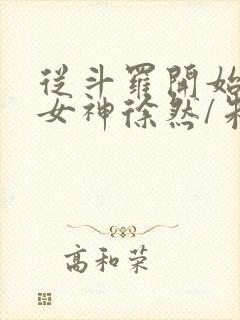 從斗羅開始
女神徐然/
高和荣